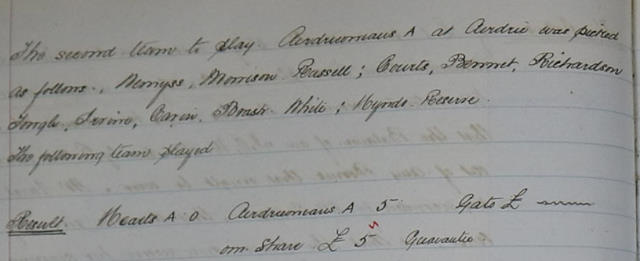 The second team to play Airdrieonians A at Airdrie was picked
as follows. Wemyss, Morrison Russell; Courts, Bennet, Richardson
Tongle, Irvine, Brash White; Hynds Reserve
The following team played
Result Hearts A 0 Airdrieonians A 5 Gate £
our Share £ 5 Guarantee